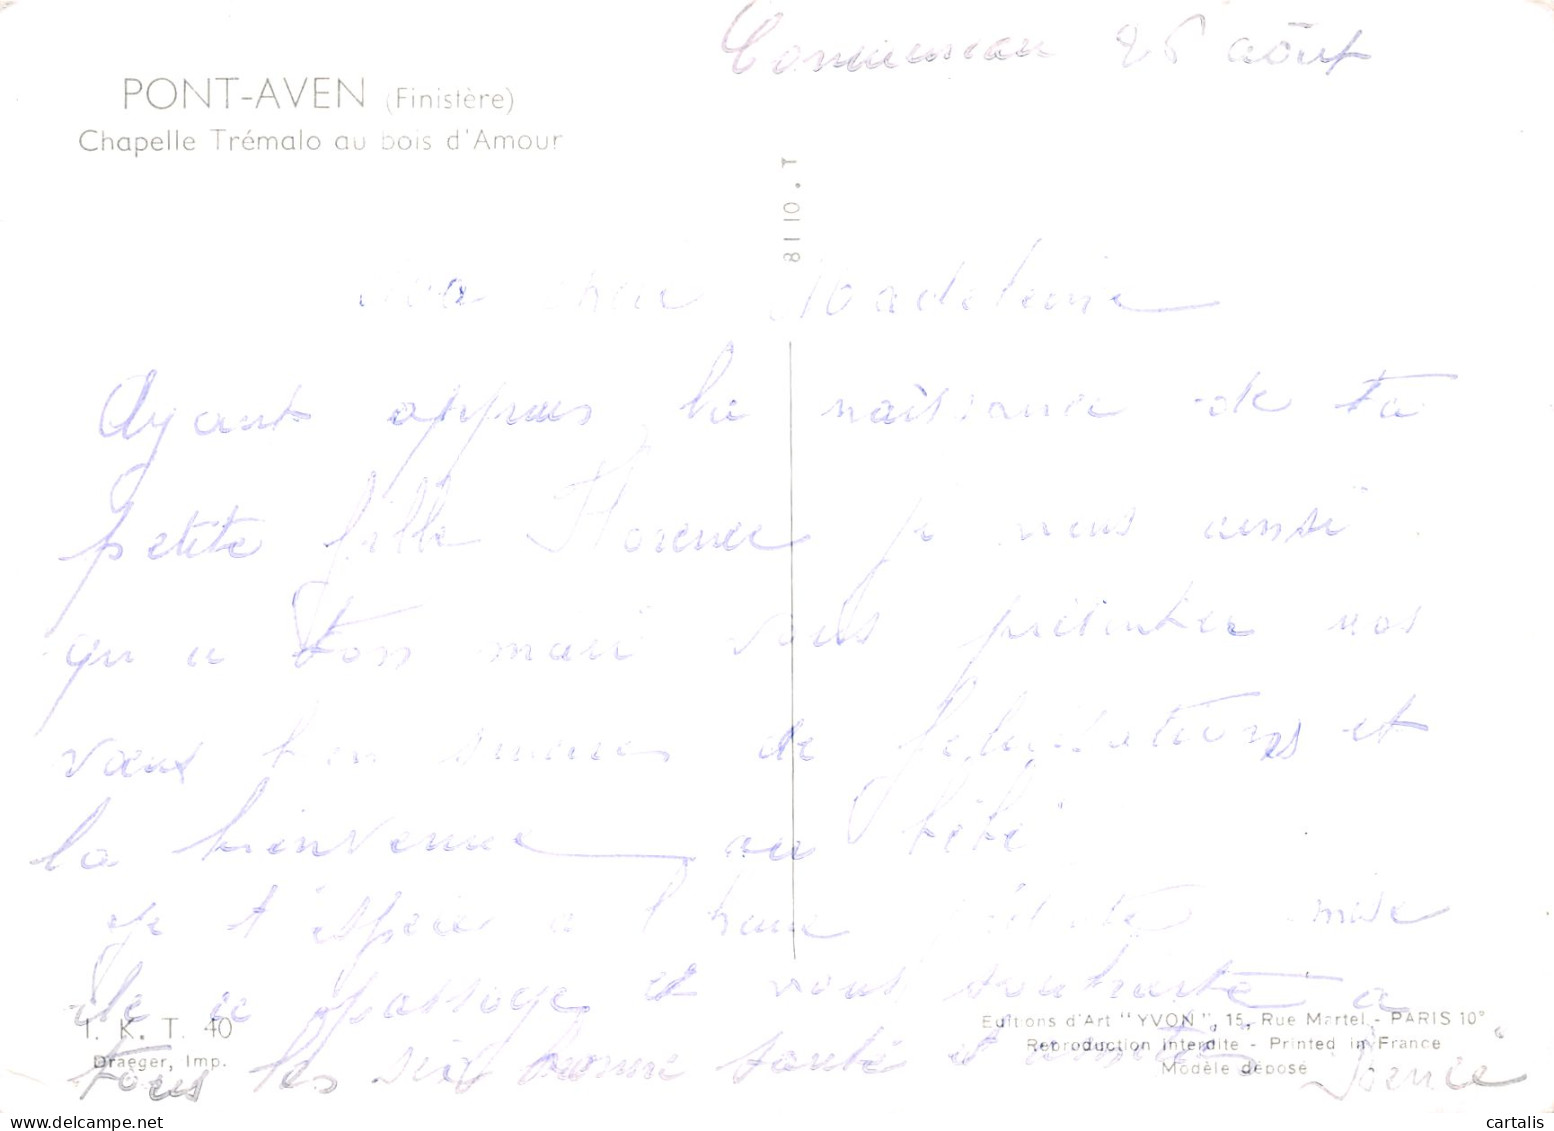 26 août
PONT-AVEN (Finistère)
Chapelle Trémalo au bois d'Amour
8110.T
Ma cher Madeleine
Ayant appris la naissance de ta
petite fille Florence je viens ainsi
qu a ton mari vous présenter nos
vœux bien sincères de félicitations et
la bienvenue au bébé
je t'espère a l'heure remise
de ce passage et vous souhaite à
I. K. T. 40
Editions d'Art "YVON", 15, Rue Martel - PARIS 10e
Reproduction interdite - Printed in France
Draeger, Imp.
Modèle déposé
Tous les six bonne santé et amitiés
cartalis